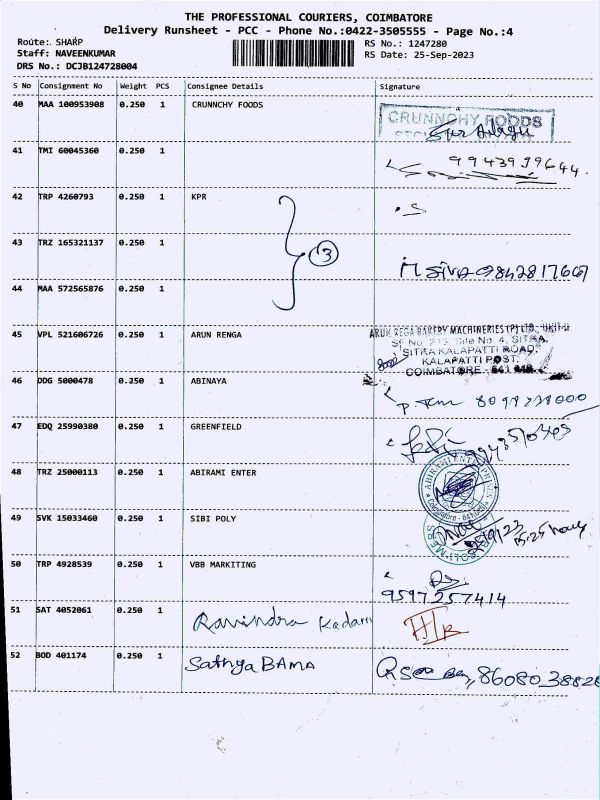 THE PROFESSIONAL COURIERS, COIMBATORE
Delivery Runsheet - PCC - Phone No.:0422-3505555 - Page No.:4
Route: SHARP
RS No.: 1247280
Staff: NAVEENKUMAR
RS Date: 25-Sep-2023
DRS No.: DCJB124728004
S No Consignment No Weight PCS Consignee Details Signature
40 MAA 100953908 0.250 1 CRUNNCHY FOODS
CRUNNCHY FOODS
41 TMI 60045360 0.250 1
9943999644
42 TRP 4260793 0.250 1 KPR
43 TRZ 165321137 0.250 1 3
M Siva 9842817667
44 MAA 572565876 0.250 1
45 VPL 521606726 0.250 1 ARUN RENGA
ARUN REGA BAKERY MACHINERIES (P) LTD., UNIT-II
SF No. 213, Site No. 4, SITRA,
SITRA KALAPATTI ROAD,
KALAPATTI POST,
COIMBATORE - 641 048
46 DDG 5000478 0.250 1 ABINAYA
47 EDQ 25990380 0.250 1 GREENFIELD
48 TRZ 25000113 0.250 1 ABIRAMI ENTER
ABIRAMI ENTERPRISES
Coimbatore
49 SVK 15033460 0.250 1 SIBI POLY
25/9/23
15:25
50 TRP 4928539 0.250 1 VBB MARKITING
9597257414
51 SAT 4052061 0.250 1 Ravindra Kadam
52 BOD 401174 0.250 1 Sathya BAMA